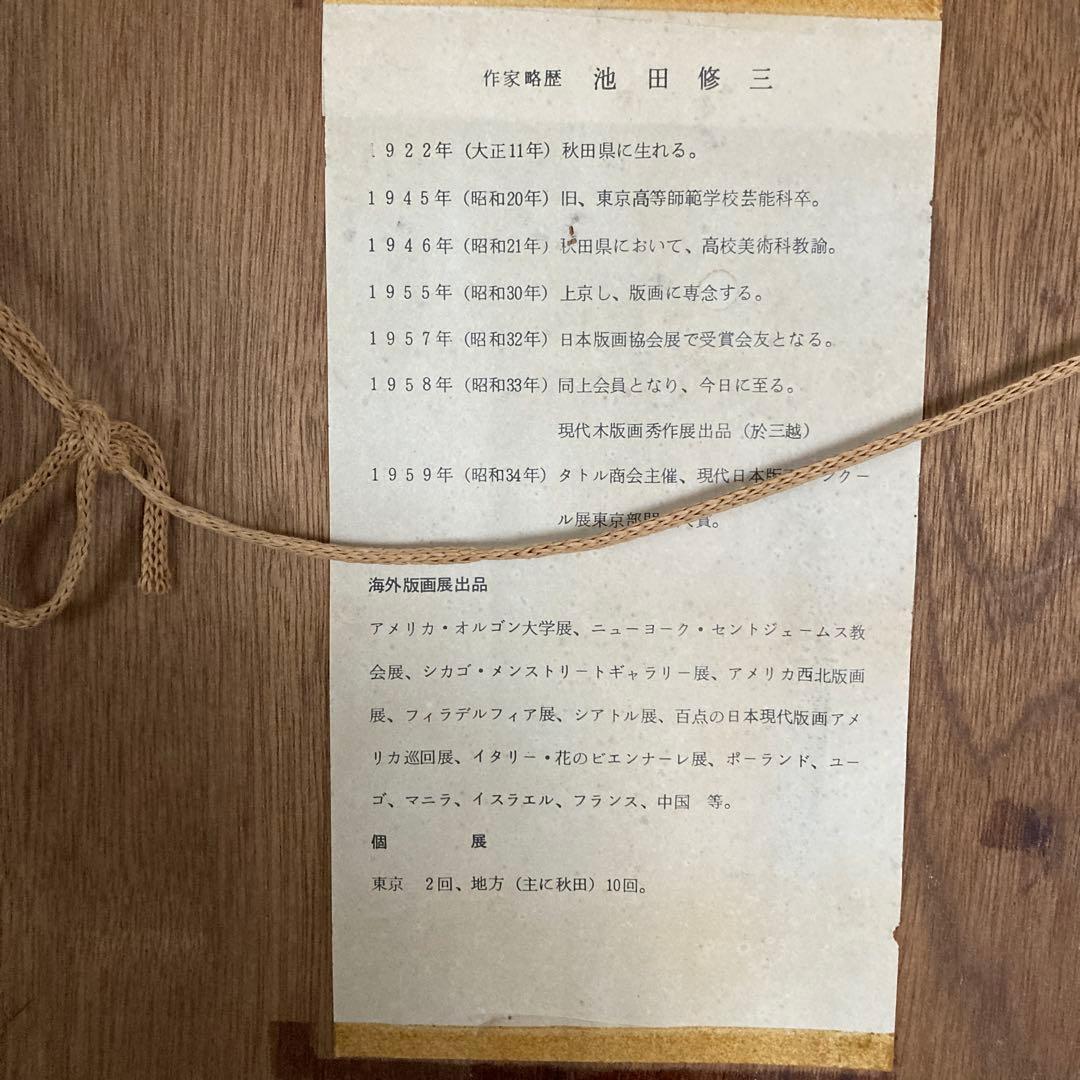 作家略歴　池田修三
1922年（大正11年）秋田県に生れる。
1945年（昭和20年）旧、東京高等師範学校芸能科卒。
1946年（昭和21年）秋田県において、高校美術科教諭。
1955年（昭和30年）上京し、版画に専念する。
1957年（昭和32年）日本版画協会展で受賞会友となる。
1958年（昭和33年）同上会員となり、今日に至る。
現代木版画秀作展出品（於三越）
1959年（昭和34年）タトル商会主催、現代日本版ンクー
ル展東京部賞。
海外版画展出品
アメリカ・オルゴン大学展、ニューヨーク・セントジェームス教
会展、シカゴ・メンストリートギャラリー展、アメリカ西北版画
展、フィラデルフィア展、シアトル展、百点の日本現代版画アメ
リカ巡回展、イタリー・花のビエンナーレ展、ポーランド、ユー
ゴ、マニラ、イスラエル、フランス、中国　等。
個　　展
東京　2回、地方（主に秋田）10回。